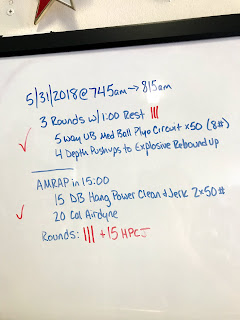 5/31/2018 @ 745am → 815am
3 Rounds w/ 1:00 Rest |||
5 way UB Med Ball Plyo Circuit x50 (8#)
4 Depth Pushups to Explosive Rebound Up
AMRAP in 15:00
15 DB Hang Power Clean & Jerk 2x50#
20 Cal Airdyne
Rounds: ||| + 15 HPCJ